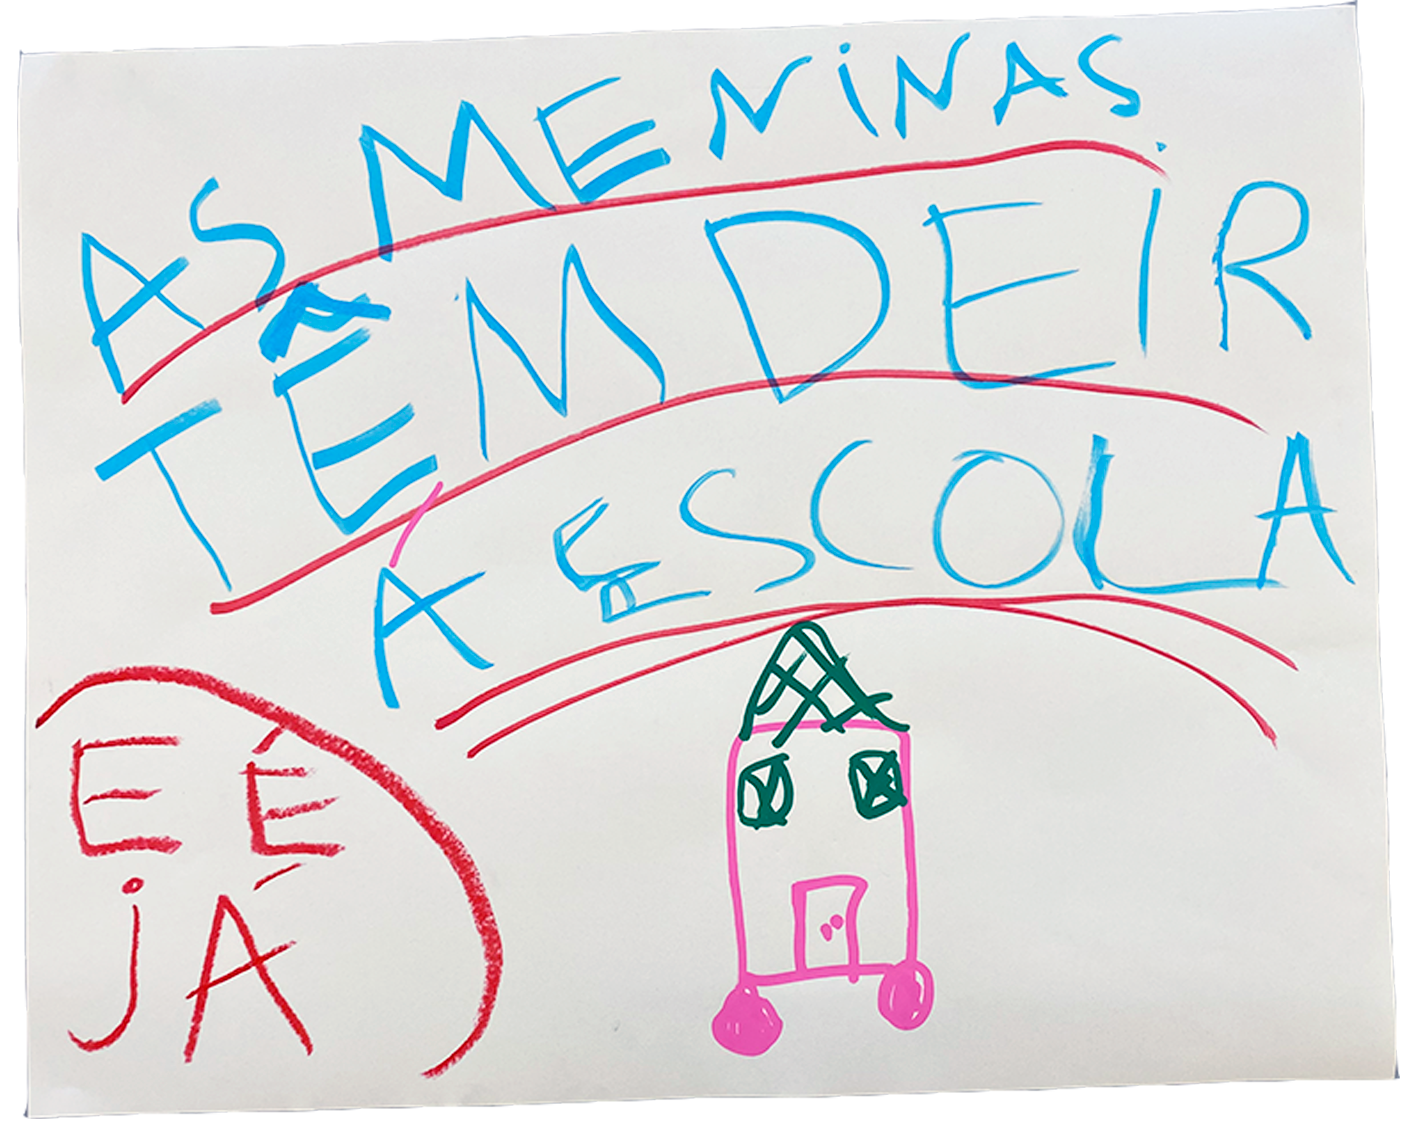 AS MENINAS
TÊM DE IR
Á ESCOLA
E É
JÁ